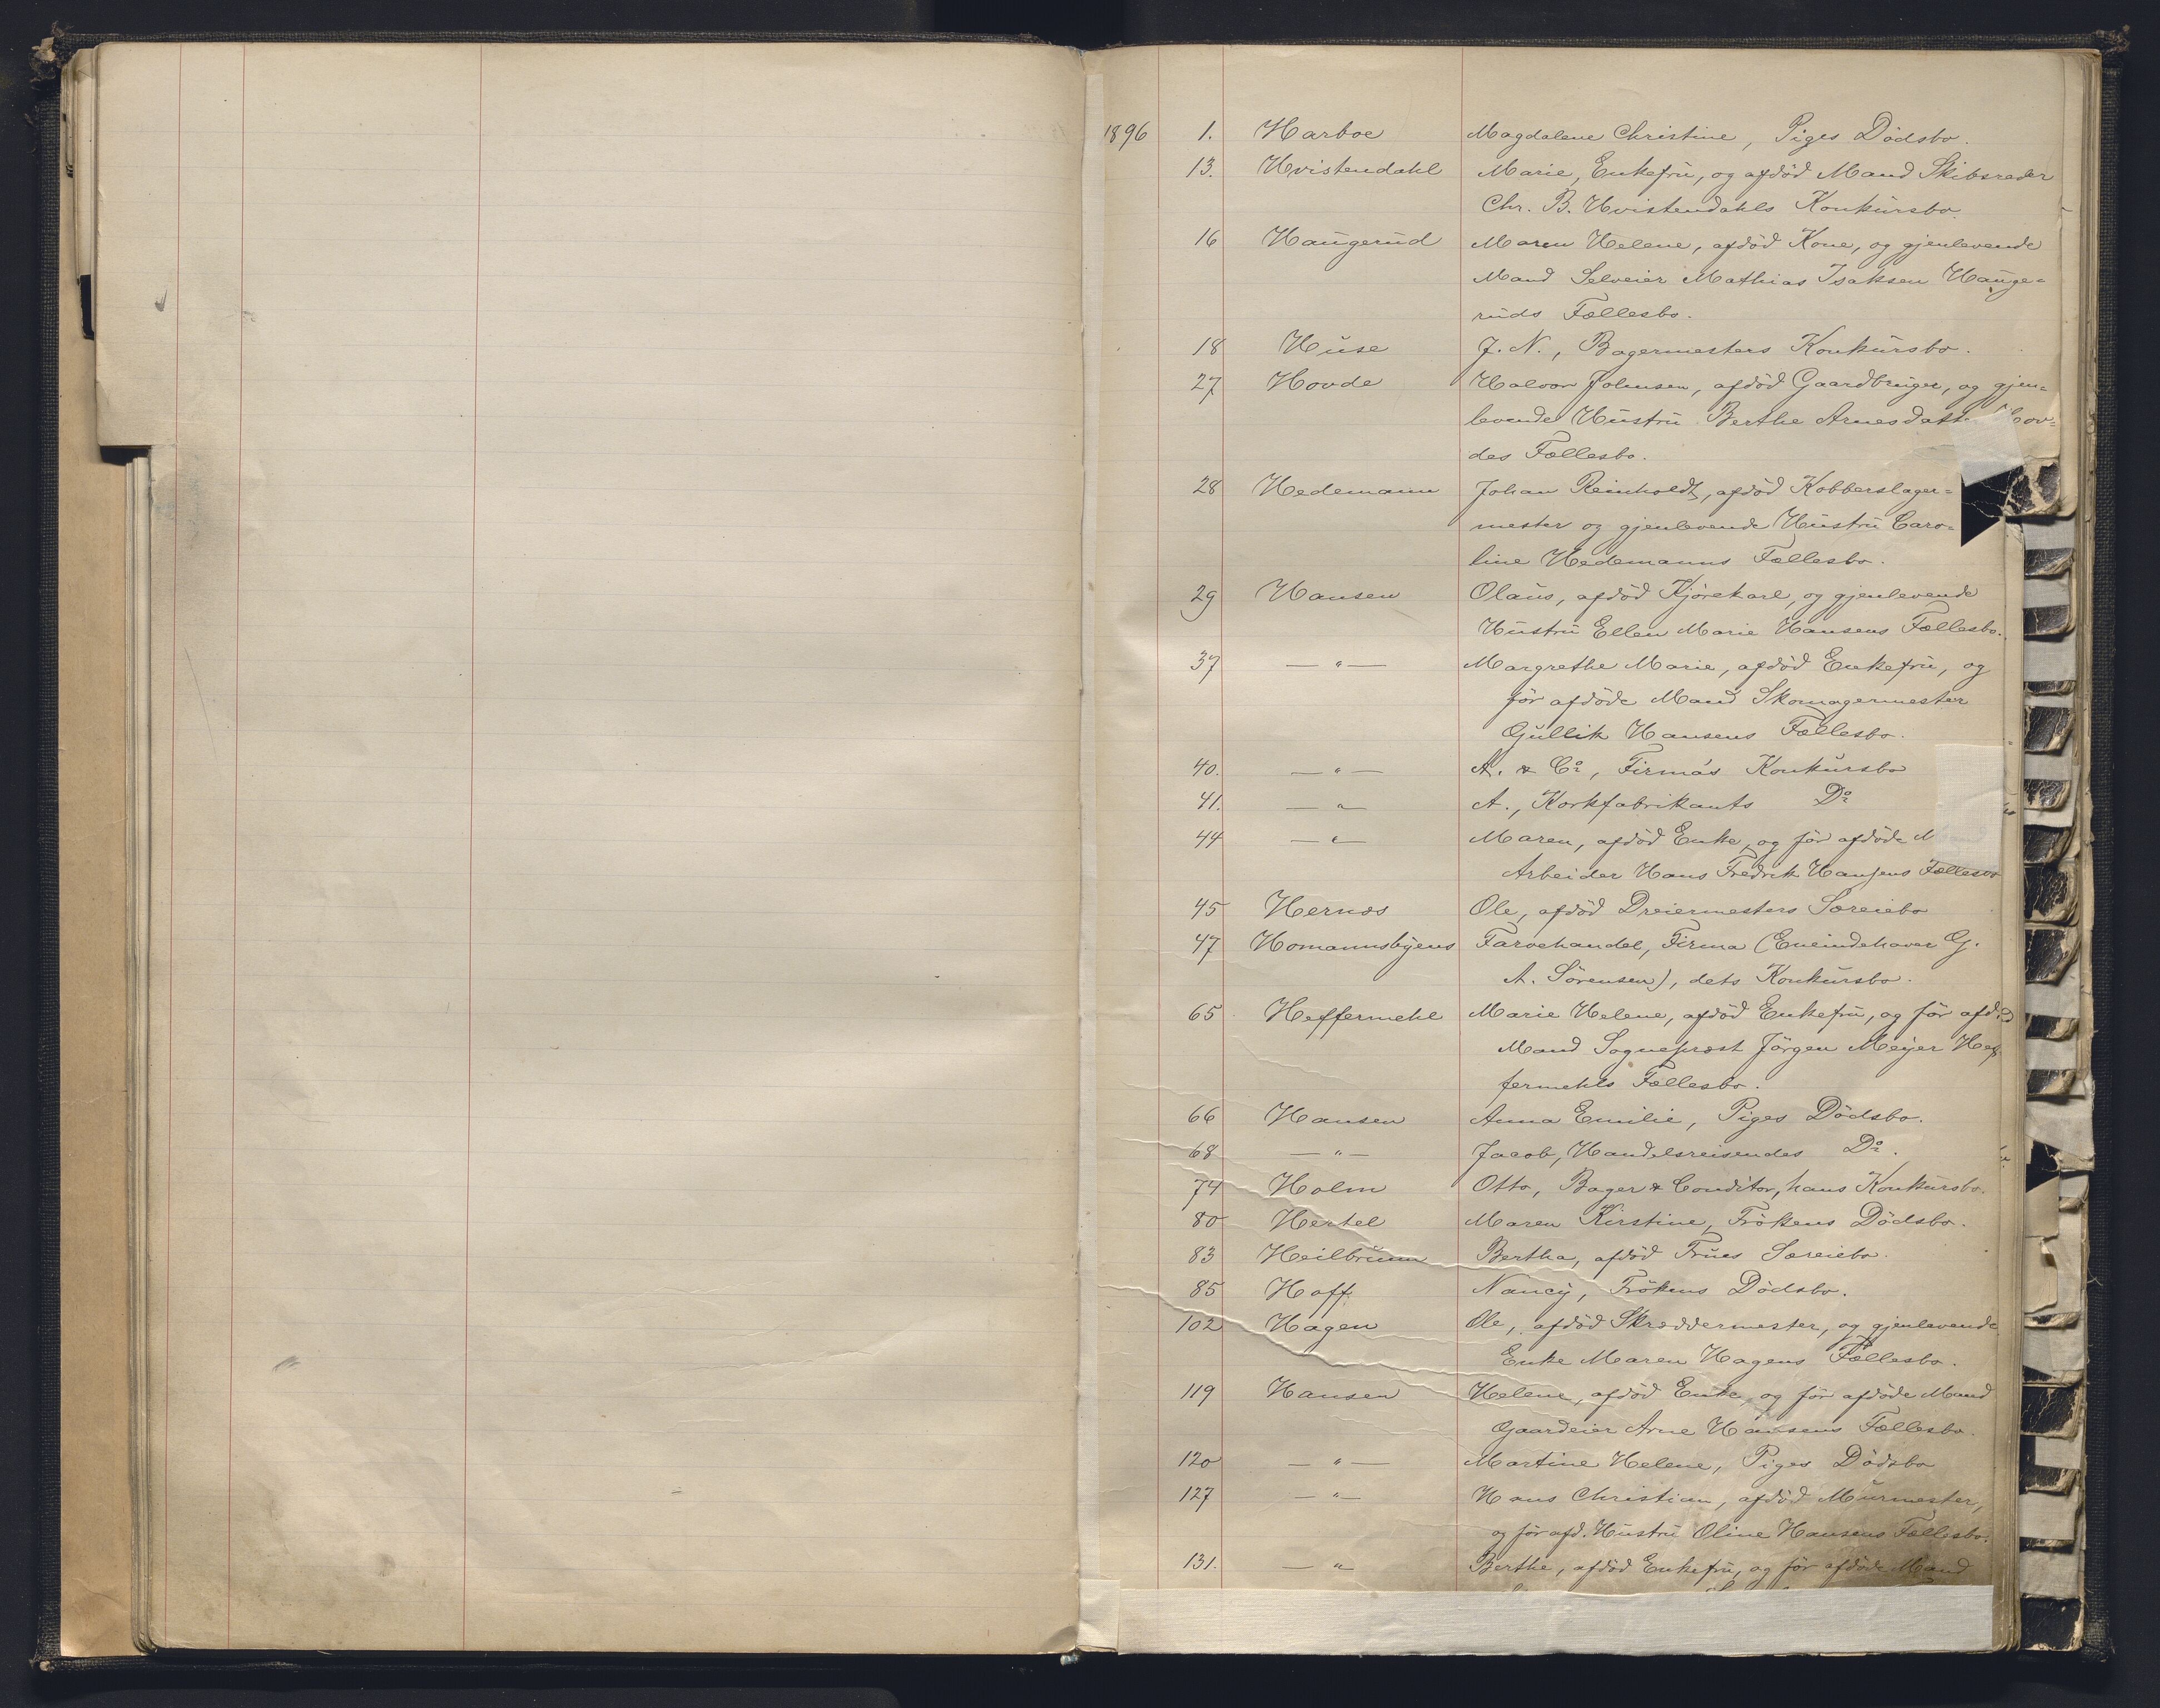 1896 1. Harboe Magdalene Christine, Piges Dödsbo.
13. Hvistendahl Marie, Enkefru, og afdöd Mand Skibsreder
Chr. B. Hvistendahls Konkursbo.
16 Haugerud Maren Helene, afdöd Kone, og gjenlevende
Mand Selveier Mathias Isaksen Hauge=
ruds Fællesbo.
18 Huse J. N., Bagermesters Konkursbo.
27 Hovde Halvor Johnsen, afdöd Gaardbruger, og gjen=
levende Hustru Berthe Arnesdatt Hov=
des Fællesbo.
28 Hedemann Johan Reinholdt, afdöd Kobberslager=
mester og gjenlevende Hustru Caro=
line Hedemanns Fællesbo.
29 Hansen Olaus, afdöd Kjörekarl, og gjenlevende
Hustru Ellen Marie Hansens Fællesbo.
37 — " — Margrethe Marie, afdöd Enkefru, og
för afdöde Mand Skomagermester
Gullik Hansens Fællesbo.
40. — " — A. & Co, Firma's Konkursbo
41. — " A., Korkfabrikants Do
44 — " — Maren, afdöd Enke, og för afdöde M
Arbeider Hans Fredrik Hansens Fællesbo
45 Hernæs Ole, afdöd Dreiermesters Særeiebo
47 Homannsbyens Farvehandel, Firma (Eneindehaver G.
A. Sörensen), dets Konkursbo.
65 Heffermehl Marie Helene, afdöd Enkefru, og för afd. d
Mand Sognepræst Jörgen Meyer Hef
fermehls Fællesbo.
66 Hansen Anna Emilie, Piges Dödsbo.
68 — " — Jacob, Handelsreisendes Do.
74 Holm Otto, Bager & Conditor, hans Konkursbo.
80 Hertel Maren Kirstine, Frökens Dödsbo.
83 Heilbrunn Bertha, afdöd Frues Særeiebo.
85 Hoff Nancy, Frökens Dödsbo.
102 Hagen Ole, afdöd Skræddermester, og gjenlevende
Enke Maren Hagens Fællesbo.
119 Hansen Helene, afdöd Enke, og för afdöde Mand
Gaardeier Arne Hansens Fællesbo.
120 — " — Martine Helene, Piges Dödsbo
127 — " — Hans Christian, afdöd Murmester,
og för afd. Hustru Oline Hansens Fællesbo.
131. — " Berthe, afdöd Enkefru, og för afdöde Mand